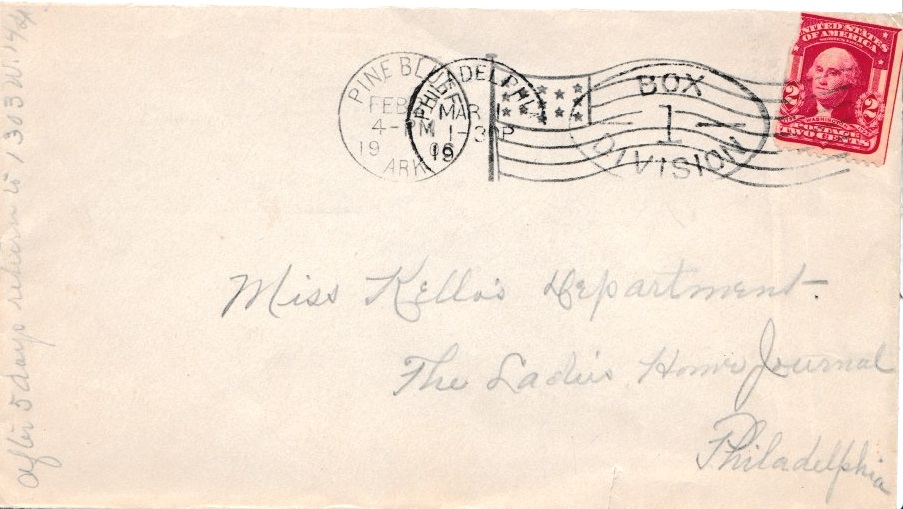 After 5 days return to 1303 W. 14th
PINE BLUFF
FEB
4-PM
19 06
ARK.
PHILADELPHIA
MAR 1
1-30P
19
BOX
1
DIVISION
UNITED STATES
OF AMERICA
2 2
WASHINGTON
POSTAGE
TWO CENTS
Miss Kello's Department
The Ladies Home Journal
Philadelphia